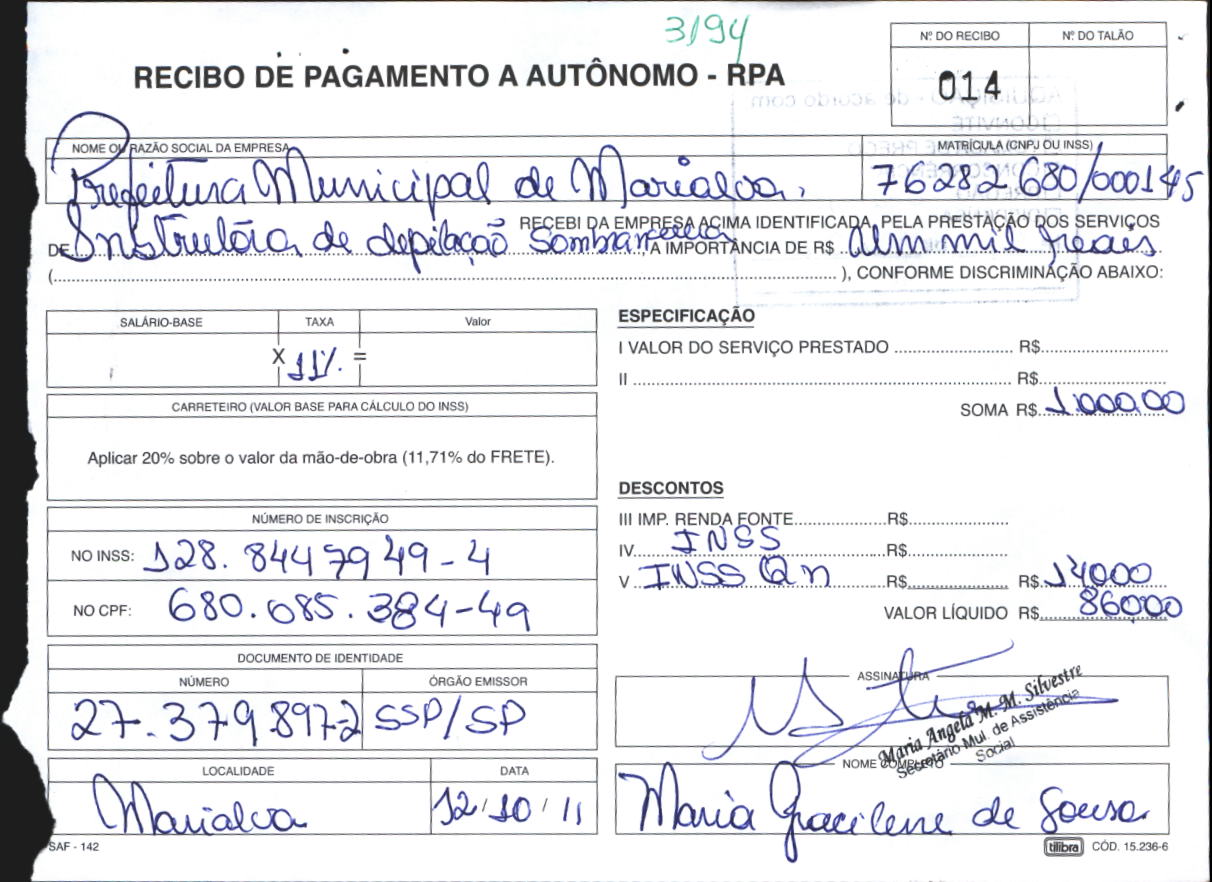 3/94
Nº DO RECIBO Nº DO TALÃO
RECIBO DE PAGAMENTO A AUTÔNOMO - RPA
014
AQUISIÇÃO - de acordo com
CONVITE
NOME OU RAZÃO SOCIAL DA EMPRESA MATRÍCULA (CNPJ OU INSS)
Prefeitura Municipal de Marialva. 76282680/000145
RECEBI DA EMPRESA ACIMA IDENTIFICADA, PELA PRESTAÇÃO DOS SERVIÇOS
DE Instrutora de depilação Sombrancelha, A IMPORTÂNCIA DE R$ Um mil reais
(...), CONFORME DISCRIMINAÇÃO ABAIXO:
SALÁRIO-BASE TAXA Valor
X 11%. =
CARRETEIRO (VALOR BASE PARA CÁLCULO DO INSS)
Aplicar 20% sobre o valor da mão-de-obra (11,71% do FRETE).
NÚMERO DE INSCRIÇÃO
NO INSS: 128.8447949-4
NO CPF: 680.085.384-49
DOCUMENTO DE IDENTIDADE
NÚMERO ÓRGÃO EMISSOR
27.379.897-2 SSP/SP
LOCALIDADE DATA
Marialva 12/10/11
SAF - 142
ESPECIFICAÇÃO
I VALOR DO SERVIÇO PRESTADO R$
II R$
SOMA R$ 1.000,00
DESCONTOS
III IMP. RENDA FONTE R$
IV INSS R$
V INSS R$ R$ 140,00
VALOR LÍQUIDO R$ 860,00
ASSINATURA
Maria Angela M. M. Silvestre
Secretário Mul. de Assistência
Social
NOME COMPLETO
Maria Gracilene de Sousa
tilibra CÓD. 15.236-6